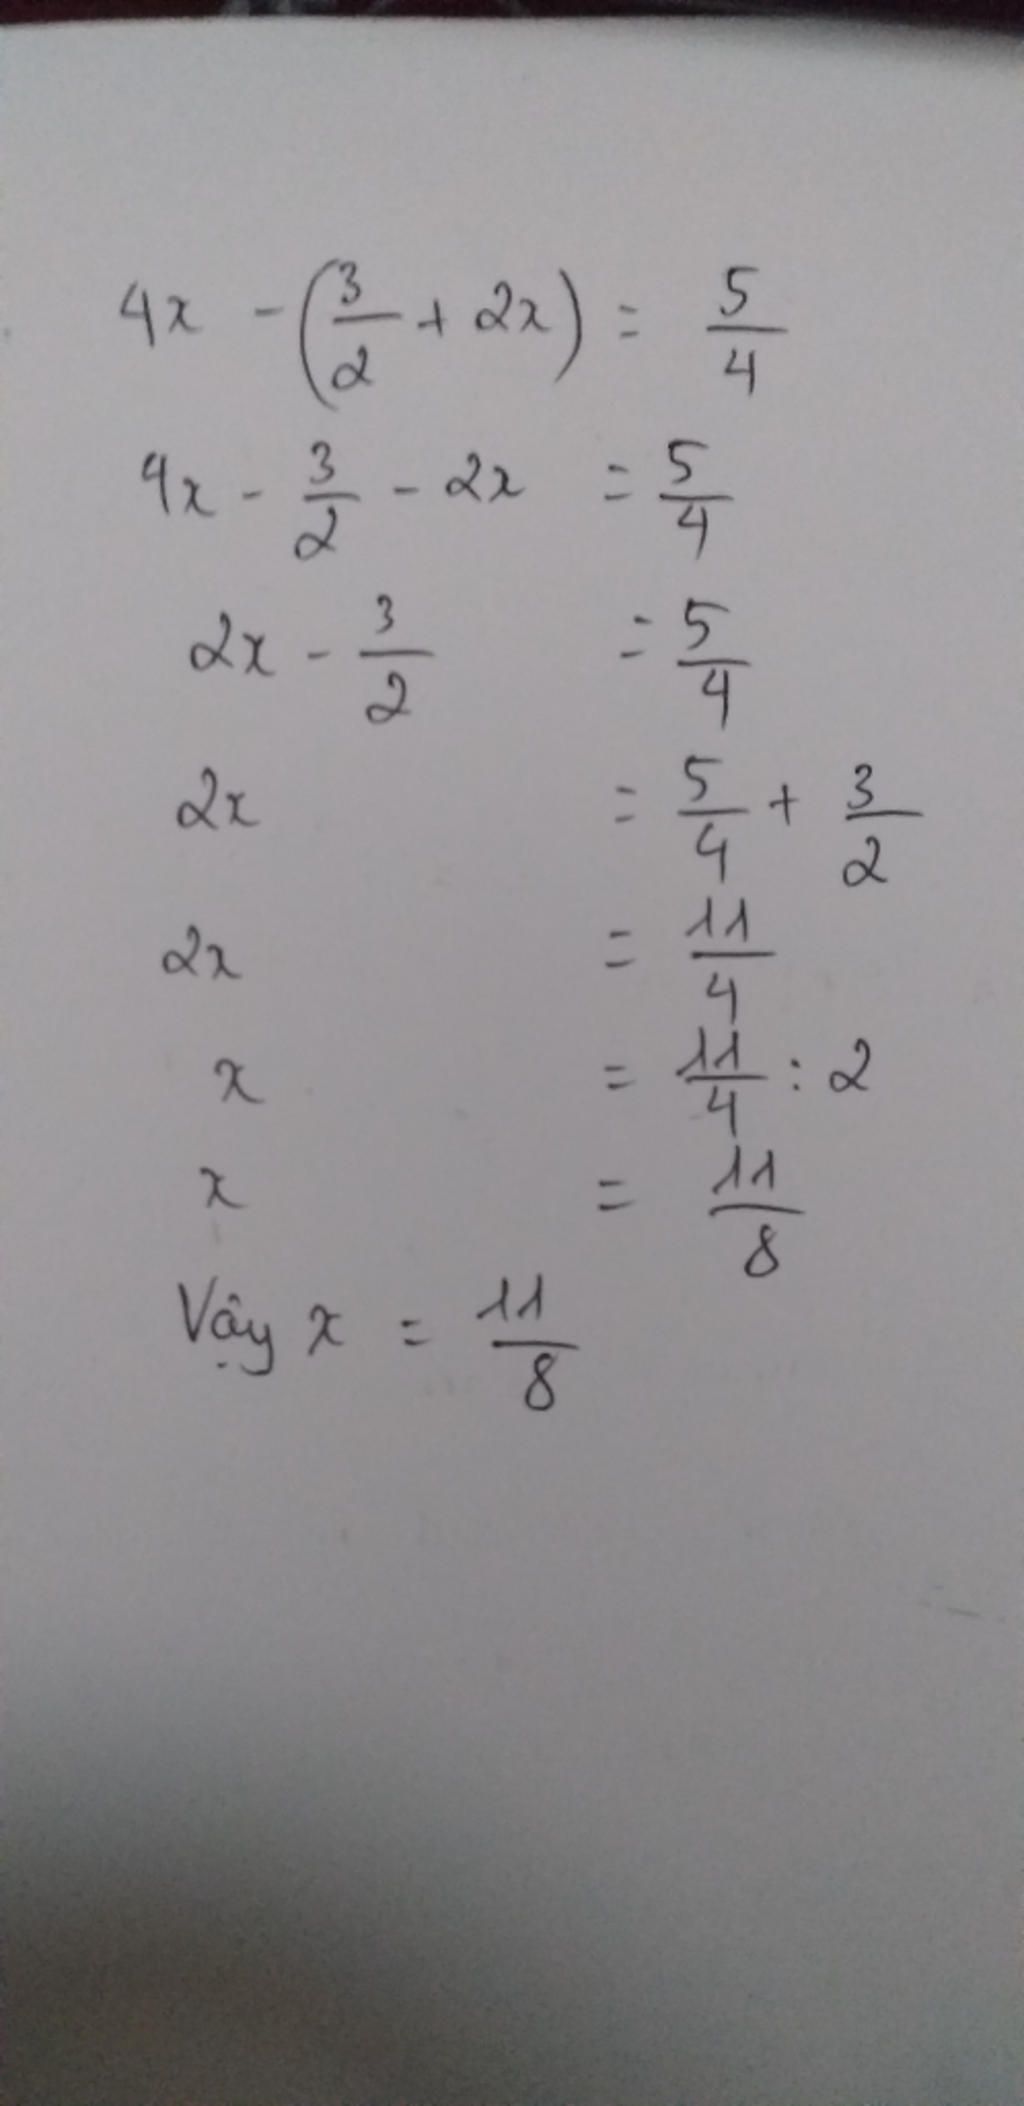 4x - (3/2 + 2x) = 5/4
4x - 3/2 - 2x = 5/4
2x - 3/2 = 5/4
2x = 5/4 + 3/2
2x = 11/4
x = 11/4 : 2
x = 11/8
Vậy x = 11/8